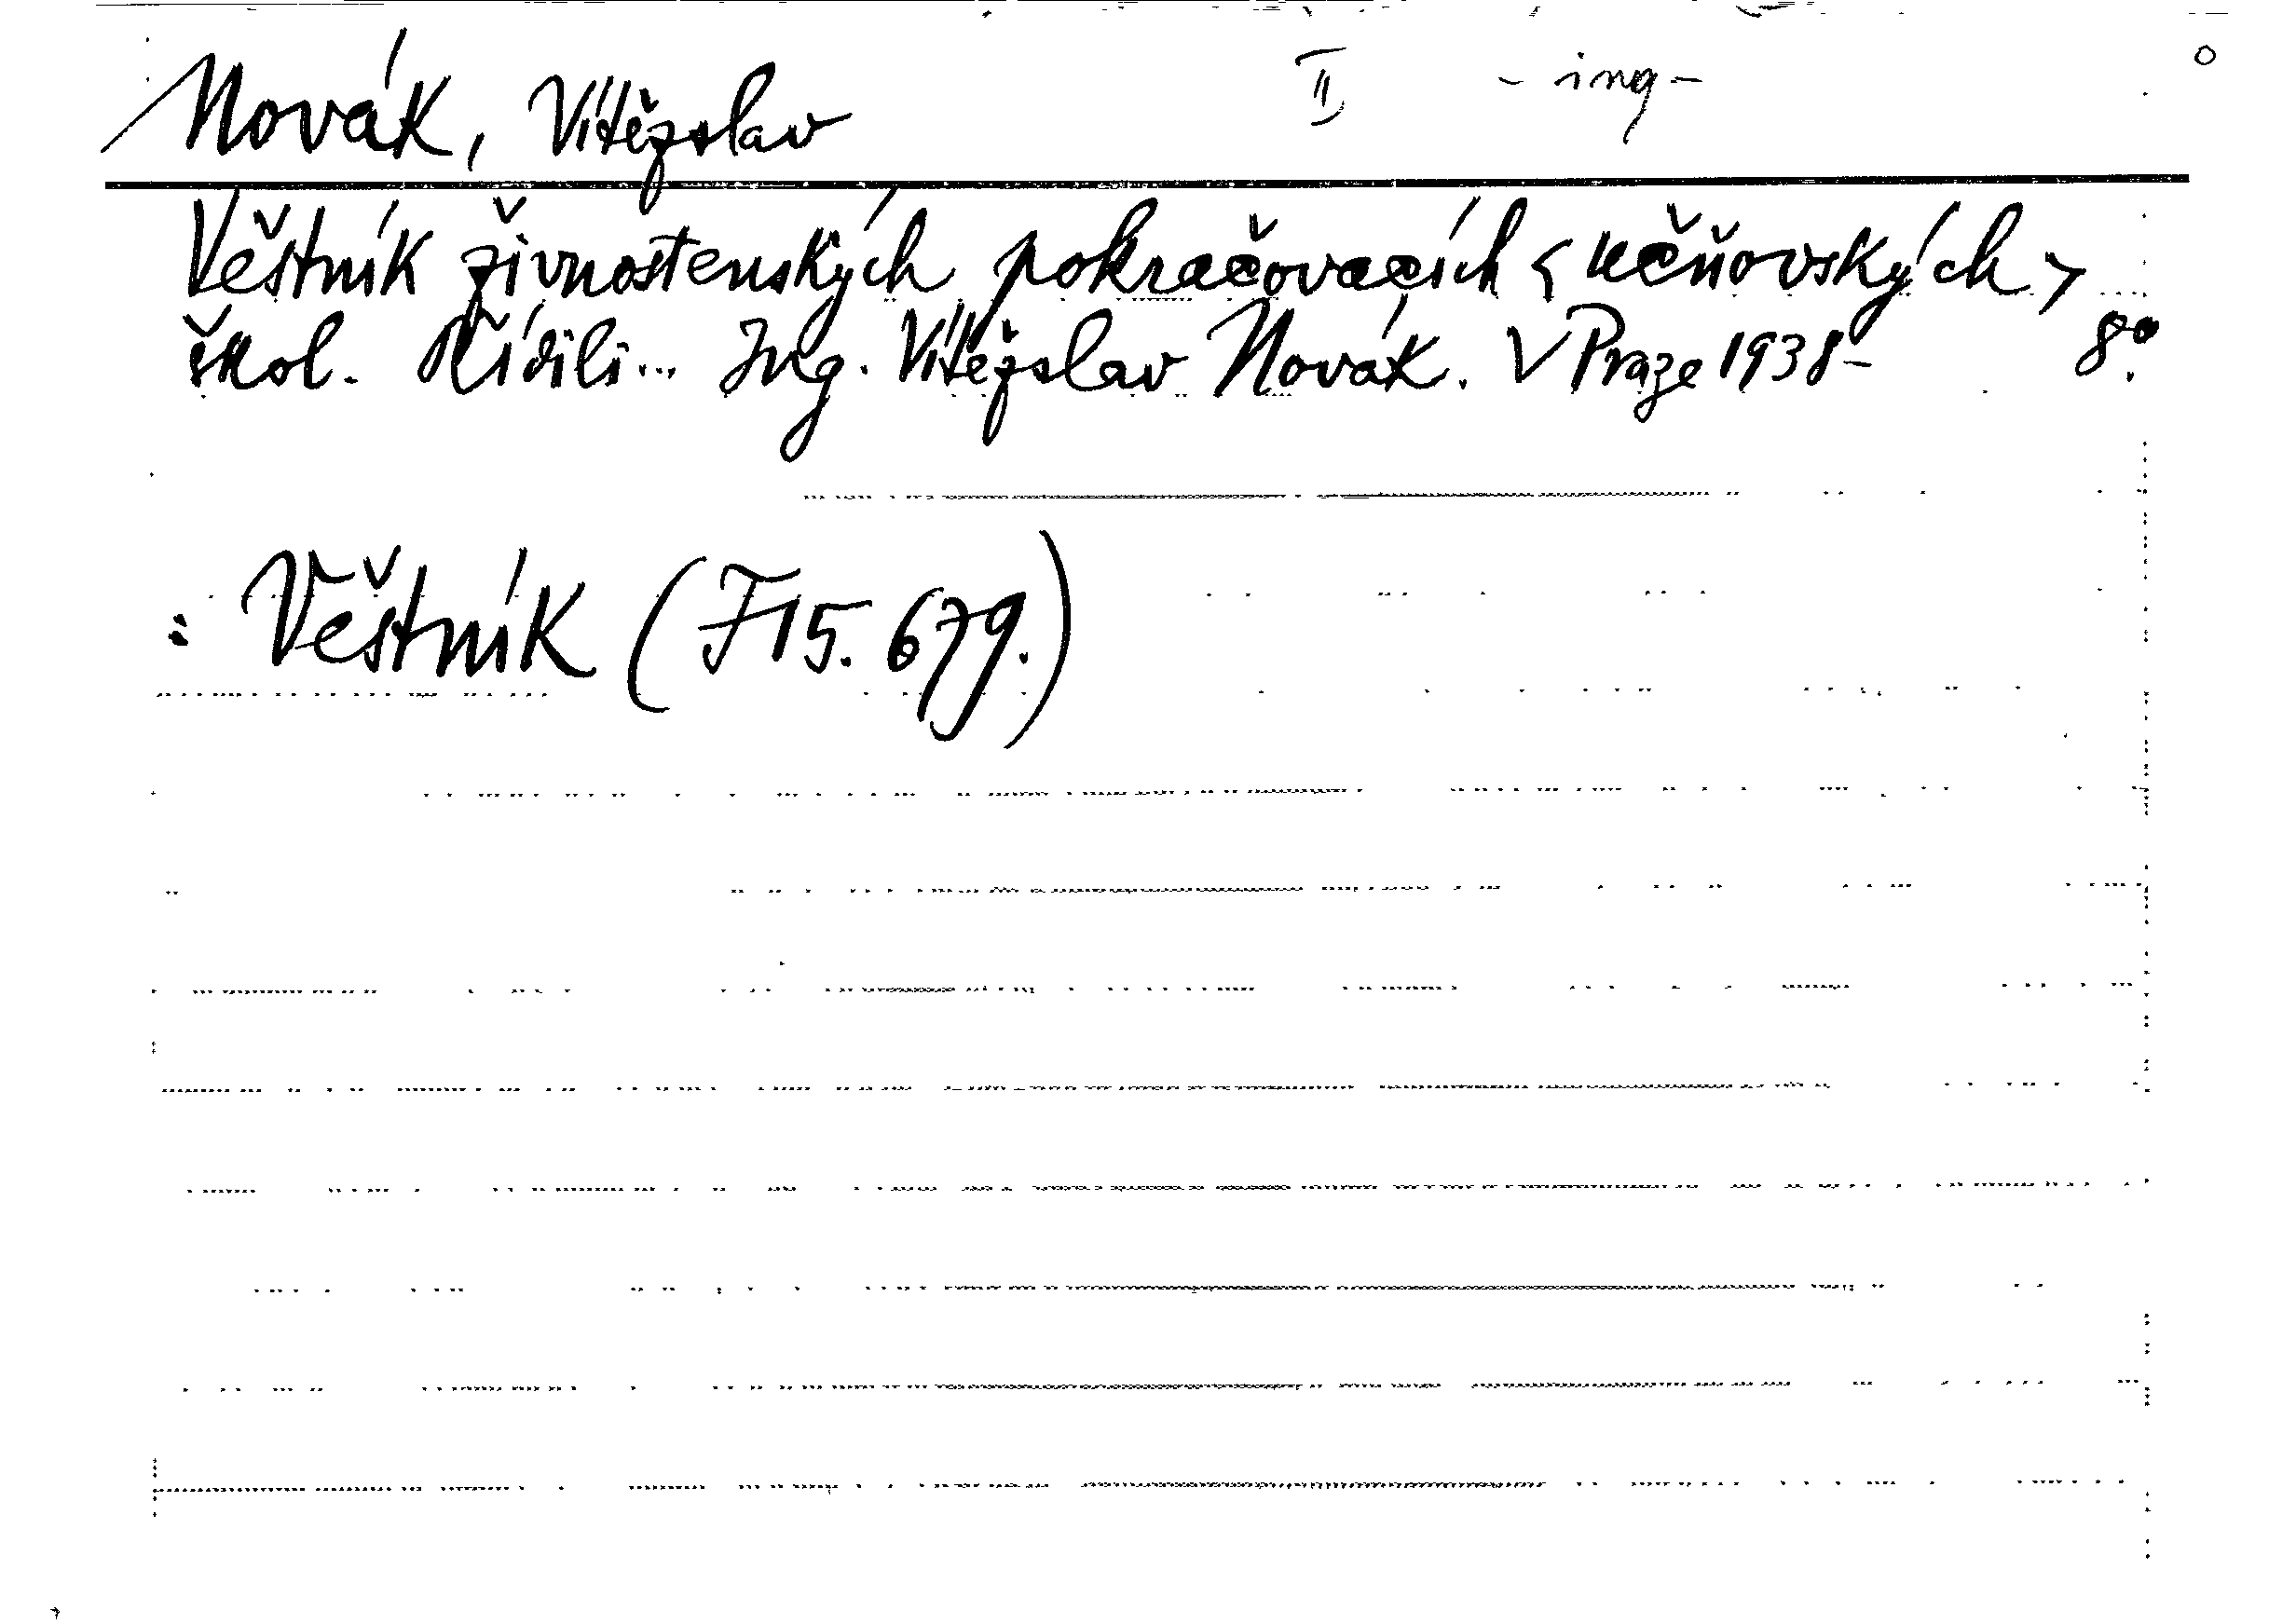 Novák, Vítězslav II - ing -
Věstník živnostenských pokračovacích < učňovských >
škol. Řídili... Ing. Vítězslav Novák. V Praze 1938- 8°.
: Věstník (F 15.679.)